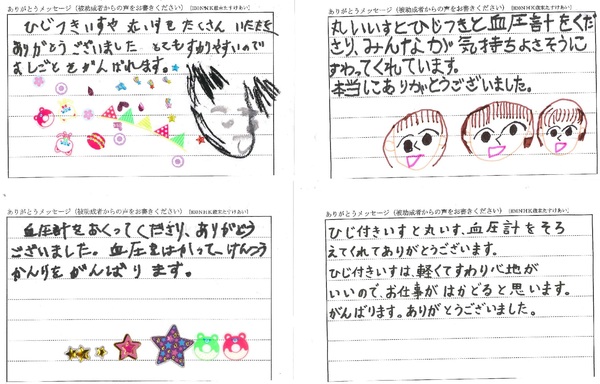 ありがとうメッセージ（被助成者からの声をお書きください）
ひじつきいすや 丸いすをたくさん いただき
ありがとうございました とてもすわりやすいので
しごとをがんばれます。
ありがとうメッセージ（被助成者からの声をお書きください）［BBBNHK歳末たすけあい］
丸いいすとひじつきと血圧計をくだ
さり、みんなが気持ちよさそうに
すわってくれています。
本当にありがとうございました。
ありがとうメッセージ（被助成者からの声をお書きください）［BBBNHK歳末たすけあい］
血圧計をおくってくださり、ありがとう
ございました。血圧をはかって、けんこう
かんりをがんばります。
ありがとうメッセージ（被助成者からの声をお書きください）［BBBNHK歳末たすけあい］
ひじ付きいすと丸いす、血圧計をそろ
えてくれてありがとうございます。
ひじ付きいすは、軽くてすわり心地が
いいので、お仕事がはかどると思います。
がんばります。ありがとうございました。